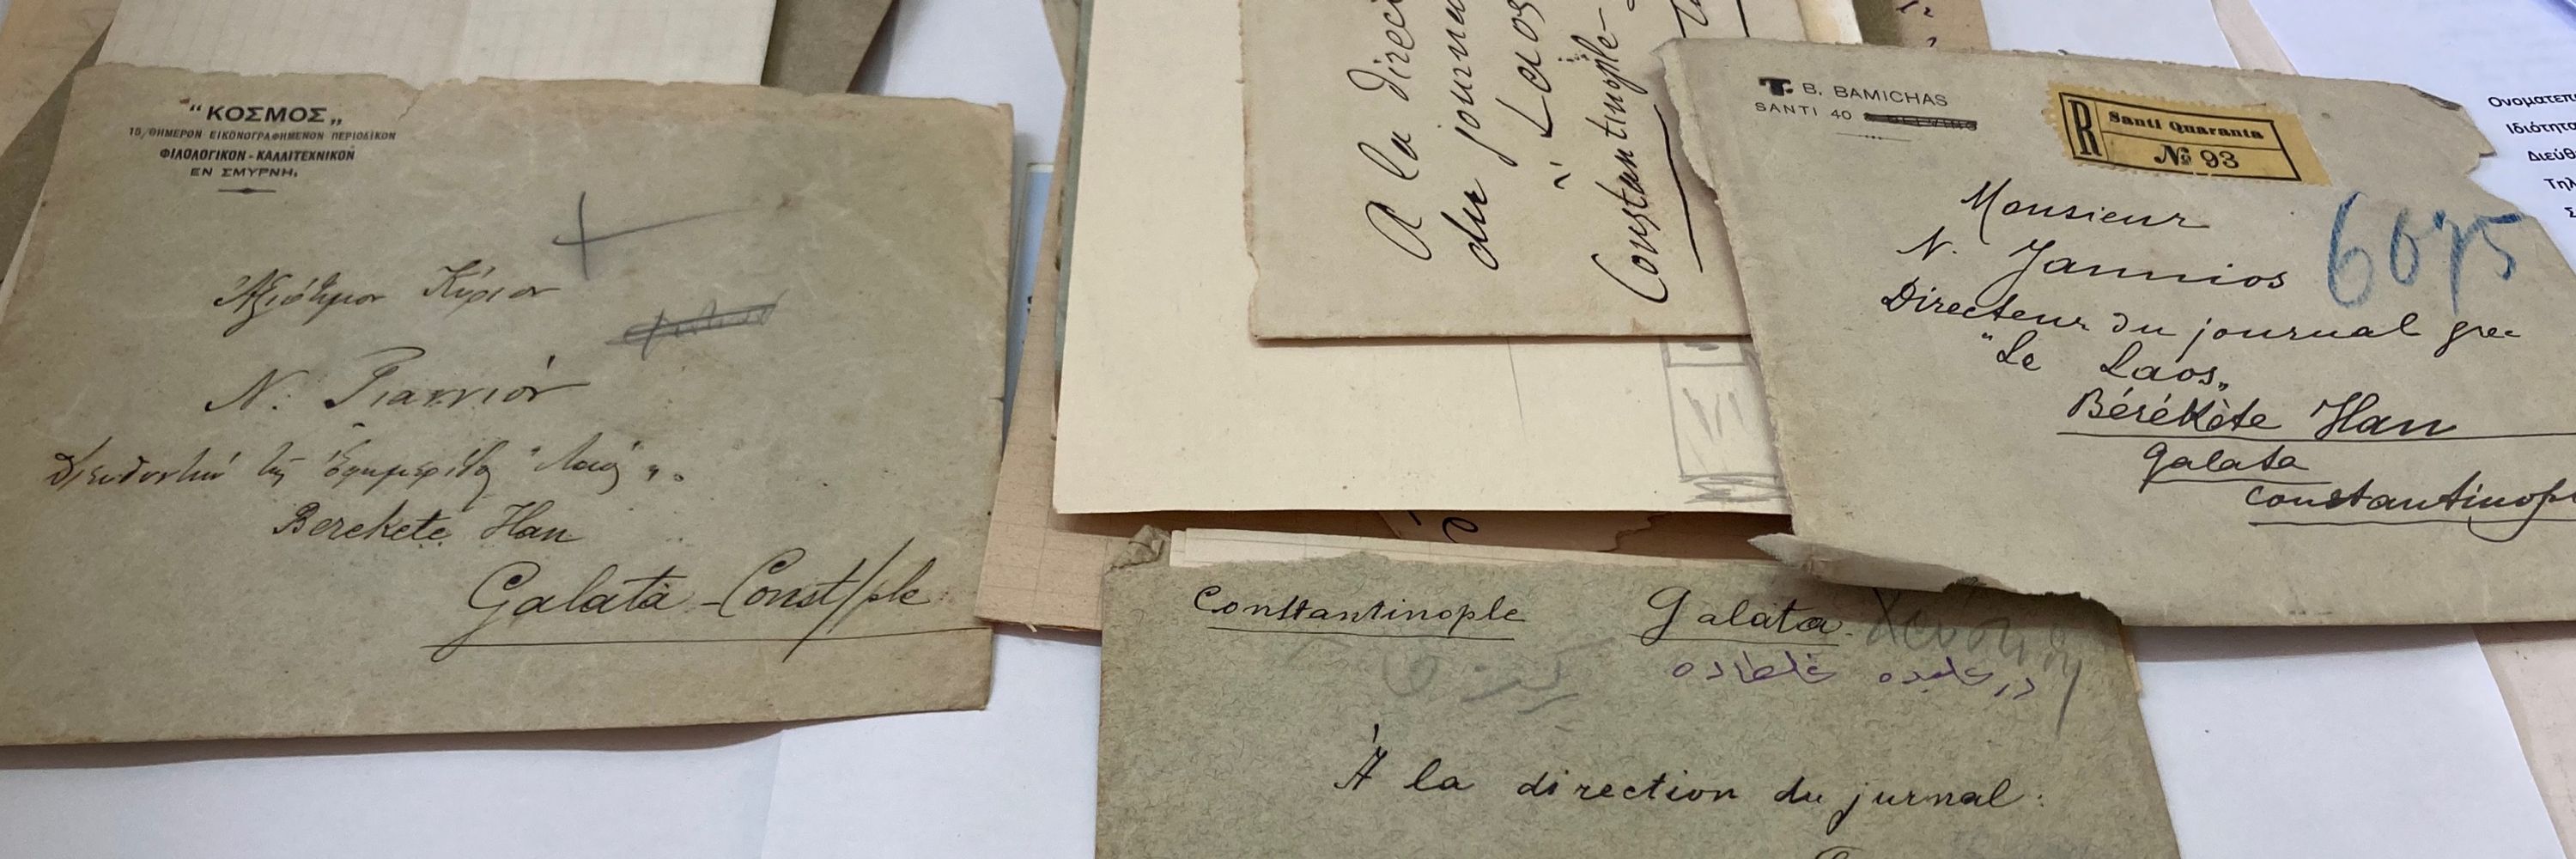 "ΚΟΣΜΟΣ„
15/ΘΗΜΕΡΟΝ ΕΙΚΟΝΟΓΡΑΦΗΜΕΝΟΝ ΠΕΡΙΟΔΙΚΟΝ
ΦΙΛΟΛΟΓΙΚΟΝ - ΚΑΛΛΙΤΕΧΝΙΚΟΝ
ΕΝ ΣΜΥΡΝΗ.
Ἀξιότιμον Κύριον
Ν. Γιαννιόν
Διευθυντὴν τῆς Ἐφημερίδος "Λαός".
Berekete Han
Galata - Const/ple
A la direc
du journa
"Laos
Constantinople-
T. B. BAMICHAS
SANTI 40
R Santi Quaranta
№ 93
Monsieur
N. Jannios
6075
Directeur du journal gre
"Le Laos„
Bérékète Han
Galata
Constantinop
Constantinople Galata
در عليده غلطاده
À la direction du jurnal:
Ονοματεπ
Ιδιότητα
Διεύθ
Τηλ